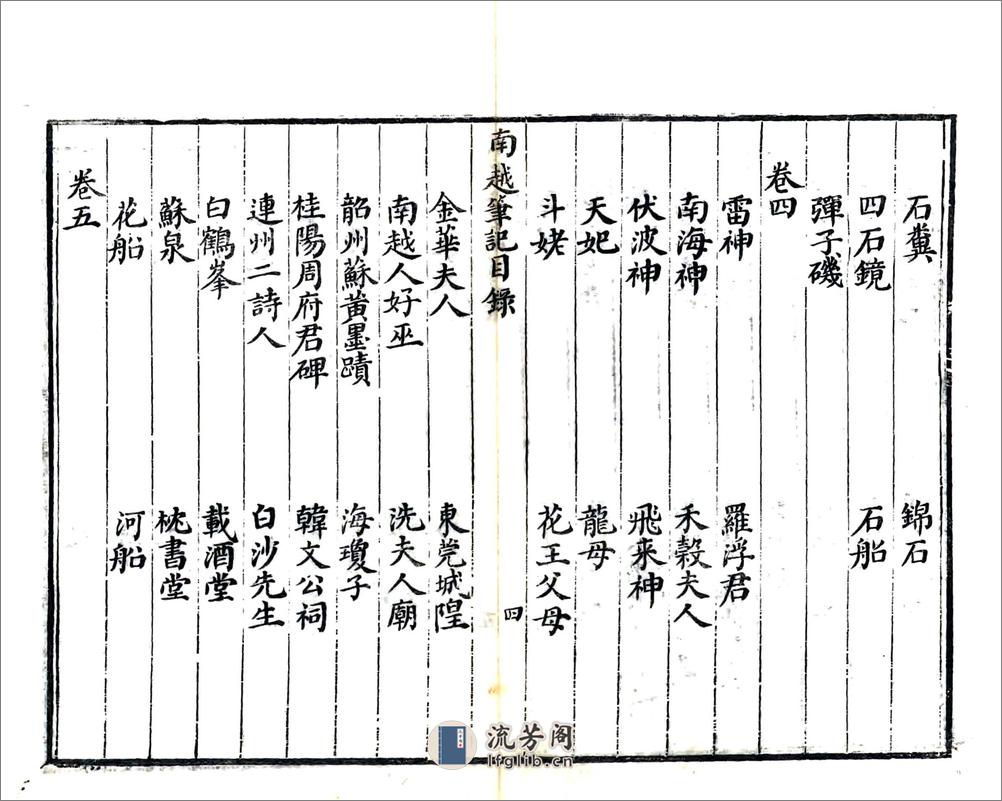 石糞 錦石
四石鏡 石船
彈子磯
卷四
雷神 羅浮君
南海神 禾穀夫人
伏波神 飛來神
天妃 龍母
斗姥 花王父母
南越筆記目錄 四
金華夫人 東莞城隍
南越人好巫 洗夫人廟
韶州蘇黃墨蹟 海瓊子
桂陽周府君碑 韓文公祠
連州二詩人 白沙先生
白鶴峯 載酒堂
蘇泉 枕書堂
花船 河船
卷五
流芳阁
lfglib.cn